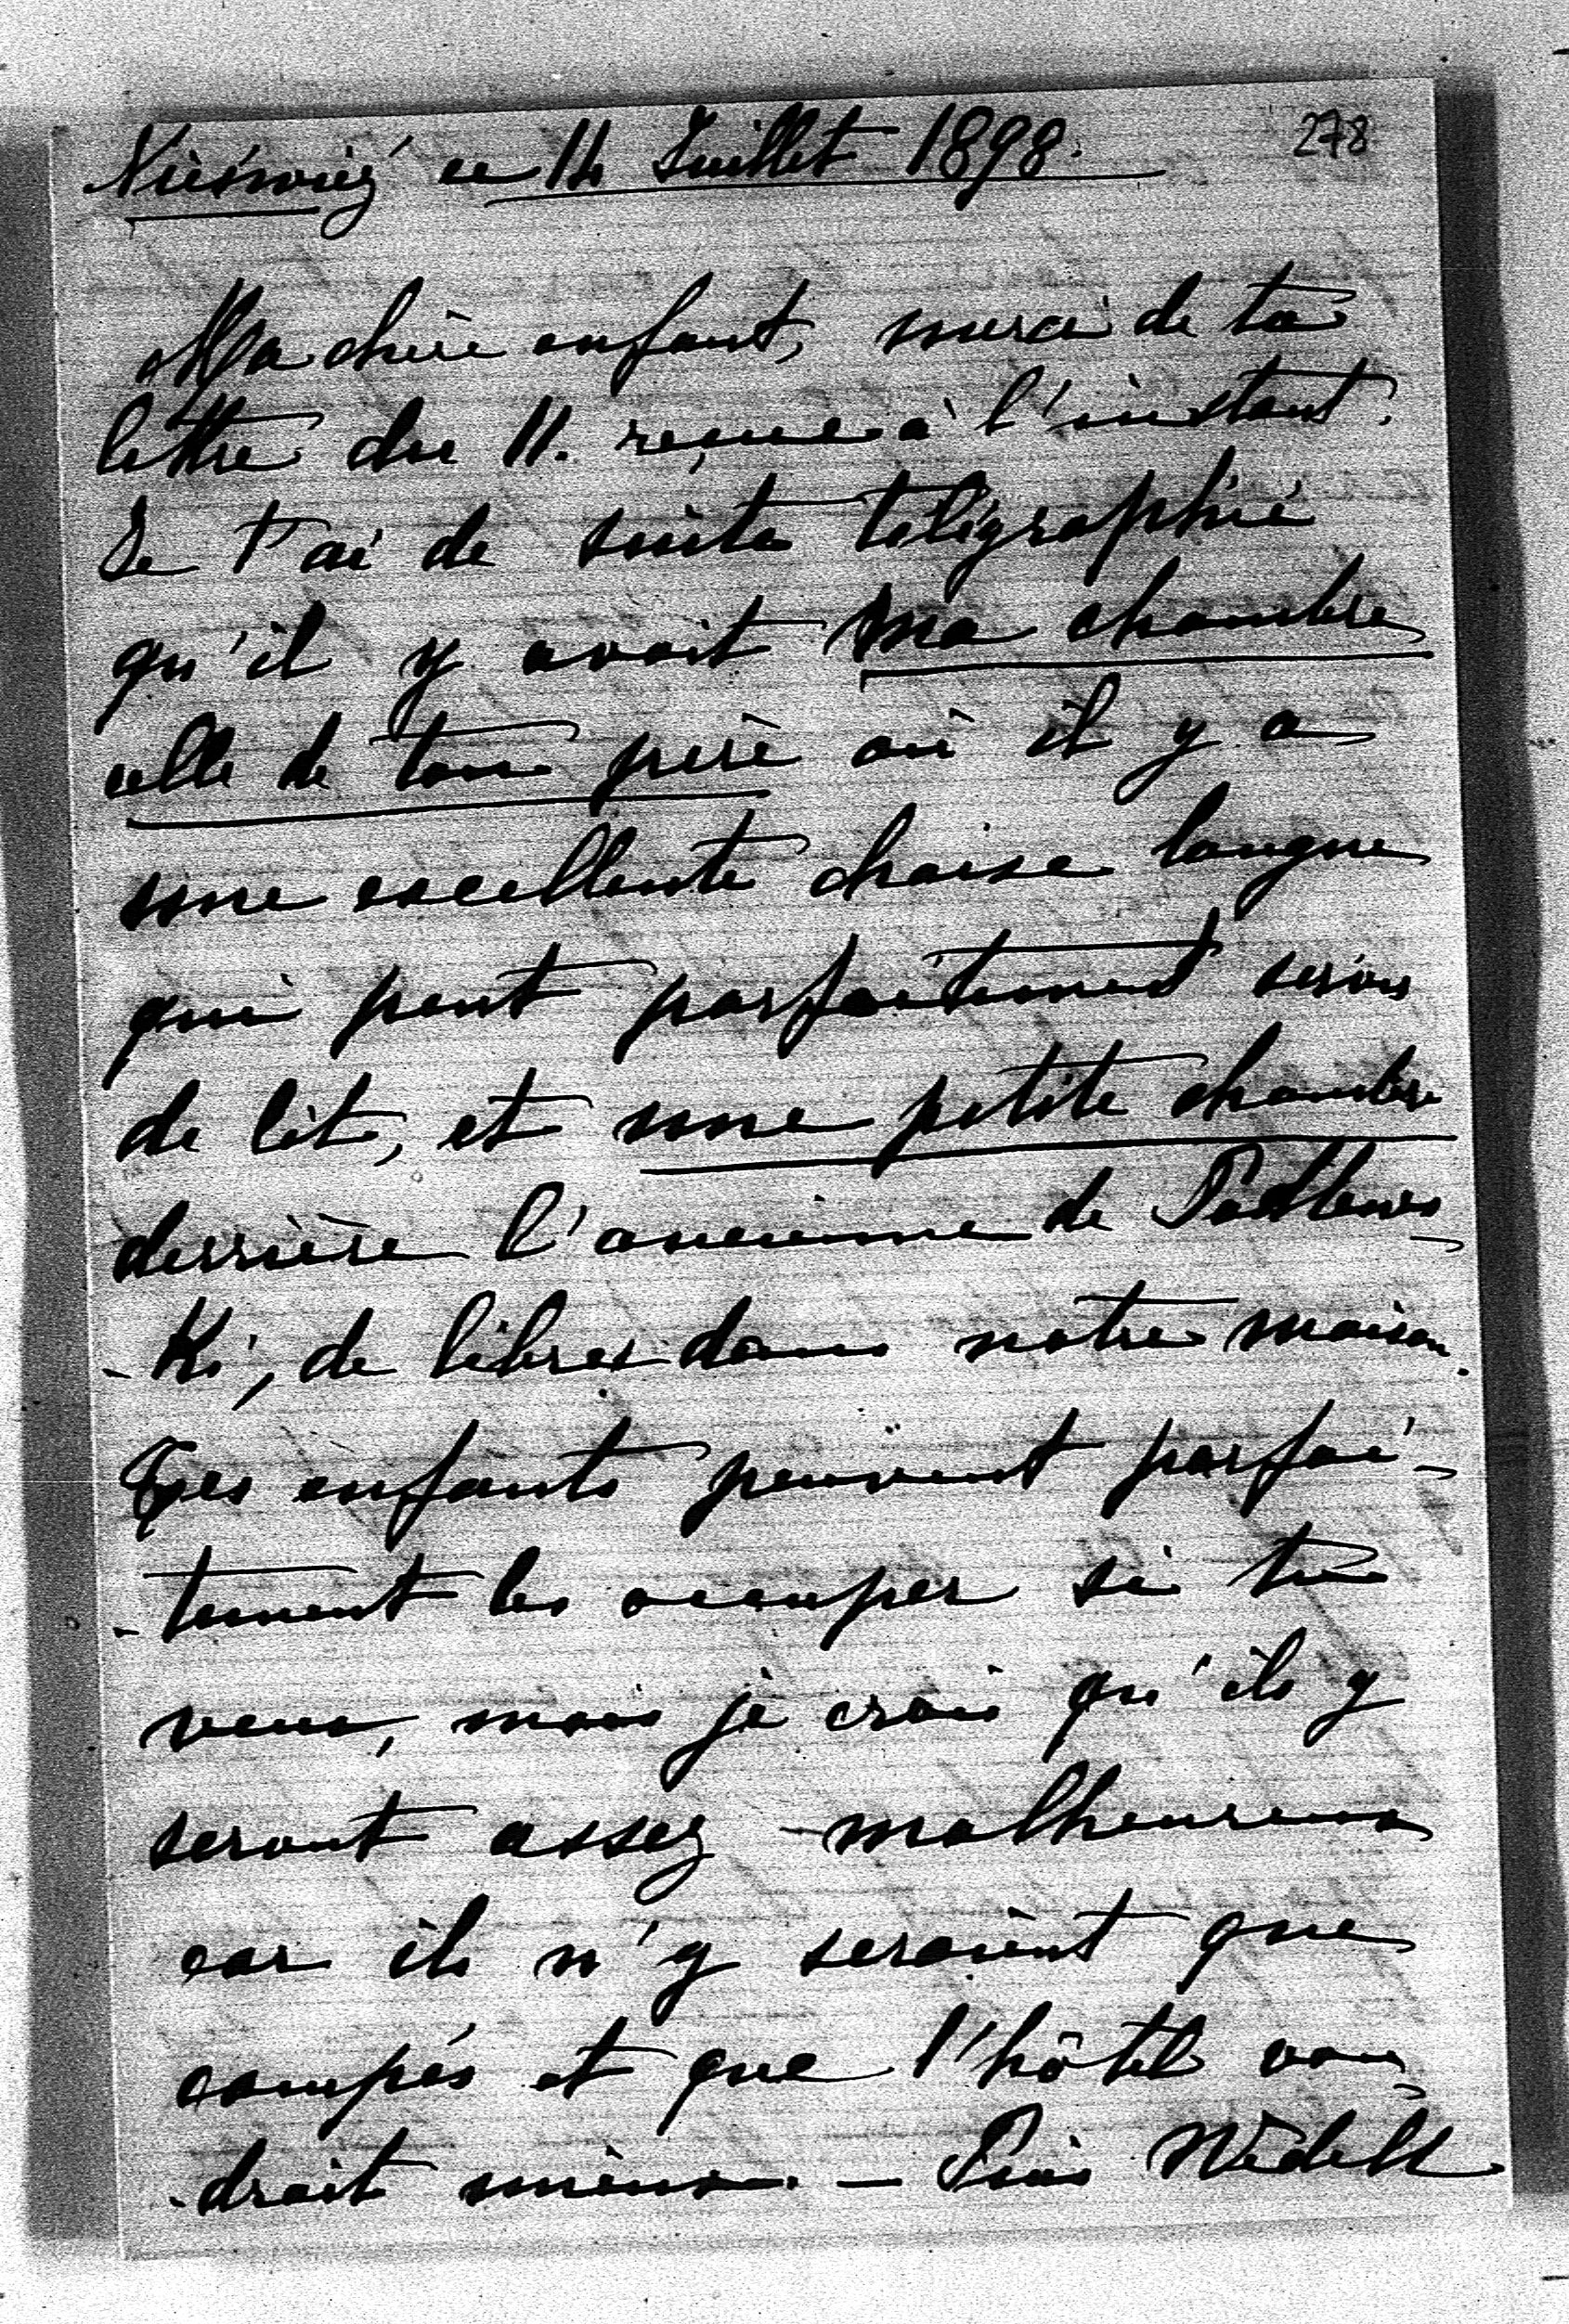 278
Nieśwież ce 14 Juillet 1898.
Ma chère enfant, merci de ta
lettre du 11. reçue à l'instant.
Je t'ai de suite télégraphié
qu'il y avait ma chambre
celle de ton père où il y a
une excellente chaise longue
qui peut parfaitement servir
de lit, et une petite chambre
derrière l'ancienne de
-ki, de libres dans notre maison.
Tes enfants peuvent parfai-
-tement les occuper si tu
veux, mais je crois qu'ils y
seront assez malheureux
car ils n'y seraient que
campés et que l'hôtel vau-
-draît mieux. — Puis Wedell